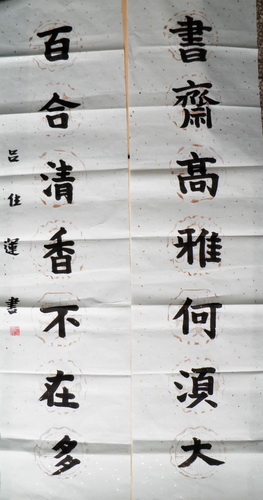 書齋高雅何須大
百合清香不在多
吕住運書